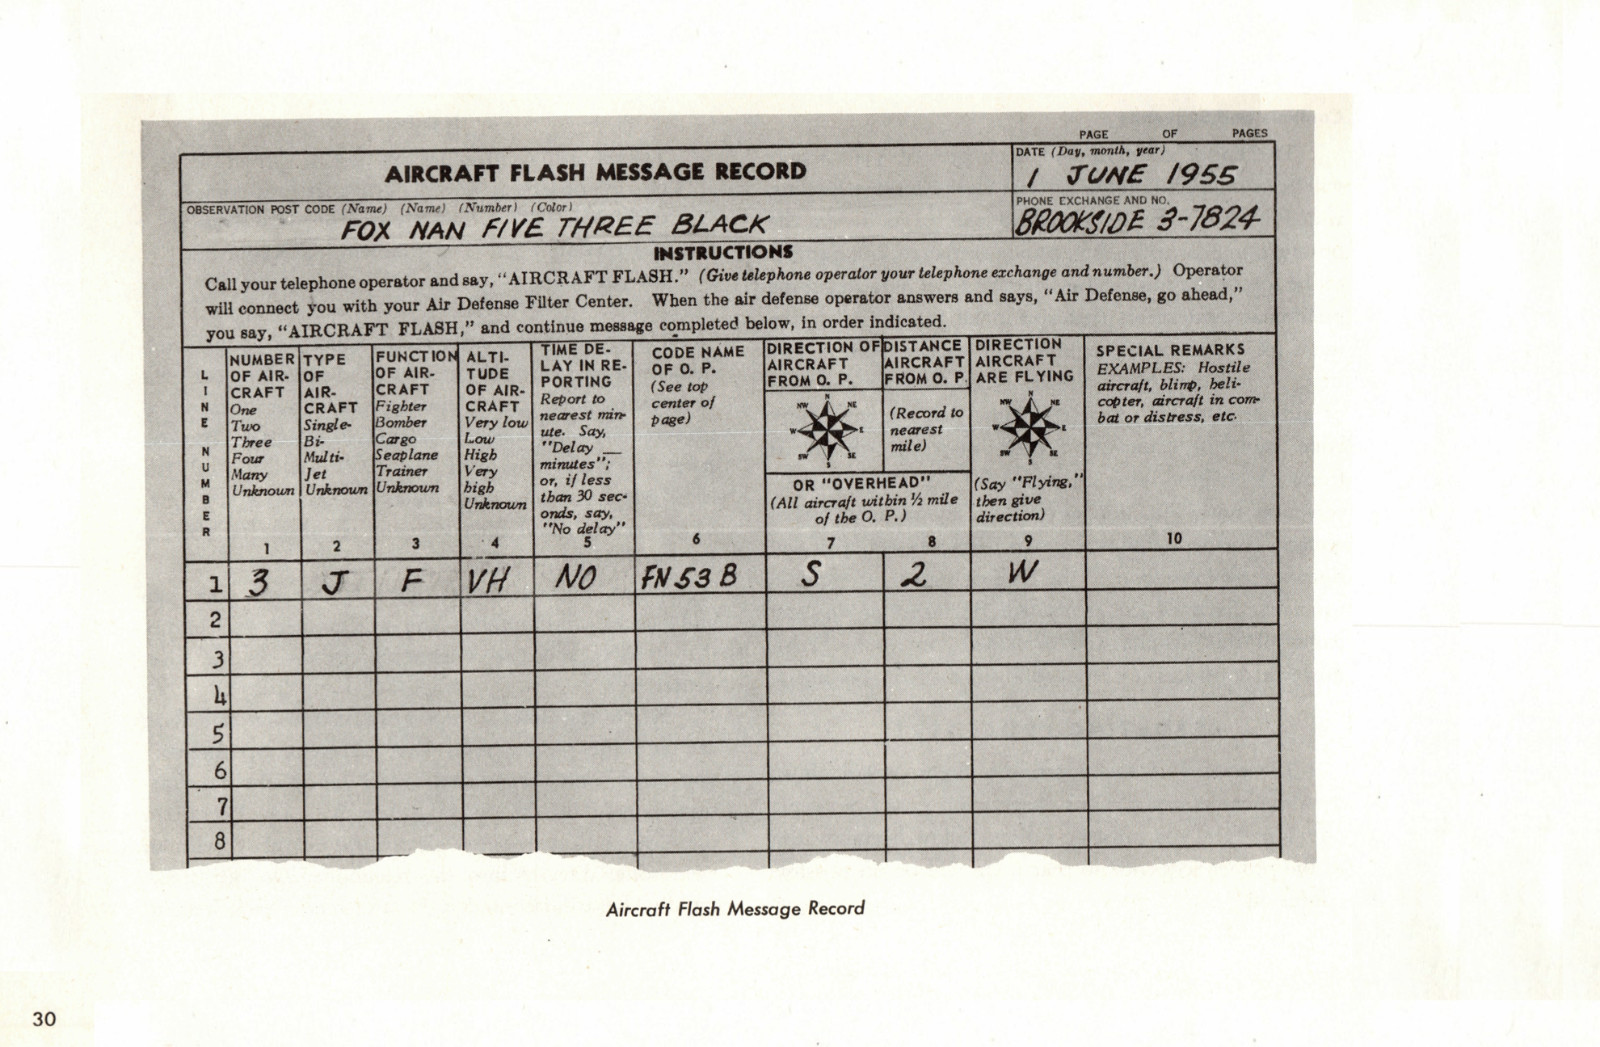 PAGE OF PAGES
AIRCRAFT FLASH MESSAGE RECORD
DATE (Day, month, year)
1 JUNE 1955
OBSERVATION POST CODE (Name) (Name) (Number) (Color)
FOX NAN FIVE THREE BLACK
PHONE EXCHANGE AND NO.
BROOKSIDE 3-7824
INSTRUCTIONS
Call your telephone operator and say, "AIRCRAFT FLASH." (Give telephone operator your telephone exchange and number.) Operator
will connect you with your Air Defense Filter Center. When the air defense operator answers and says, "Air Defense, go ahead,"
you say, "AIRCRAFT FLASH," and continue message completed below, in order indicated.
LINE NUMBER
NUMBER
OF AIR-
CRAFT
One
Two
Three
Four
Many
Unknown
1
TYPE
OF
AIR-
CRAFT
Single-
Bi-
Multi-
Jet
Unknown
2
FUNCTION
OF AIR-
CRAFT
Fighter
Bomber
Cargo
Seaplane
Trainer
Unknown
3
ALTI-
TUDE
OF AIR-
CRAFT
Very low
Low
High
Very
high
Unknown
4
TIME DE-
LAY IN RE-
PORTING
Report to
nearest min-
ute. Say,
"Delay __
minutes";
or, if less
than 30 sec-
onds, say,
"No delay"
5
CODE NAME
OF O. P.
(See top
center of
page)
6
DIRECTION OF
AIRCRAFT
FROM O. P.
N
NW NE
W E
SW SE
S
DISTANCE
AIRCRAFT
FROM O. P.
(Record to
nearest
mile)
OR "OVERHEAD"
(All aircraft within ½ mile
of the O. P.)
7 8
DIRECTION
AIRCRAFT
ARE FLYING
N
NW NE
W E
SW SE
S
(Say "Flying,"
then give
direction)
9
SPECIAL REMARKS
EXAMPLES: Hostile
aircraft, blimp, heli-
copter, aircraft in com-
bat or distress, etc.
10
1 3 J F VH NO FN 53 B S 2 W
2
3
4
5
6
7
8
Aircraft Flash Message Record
30